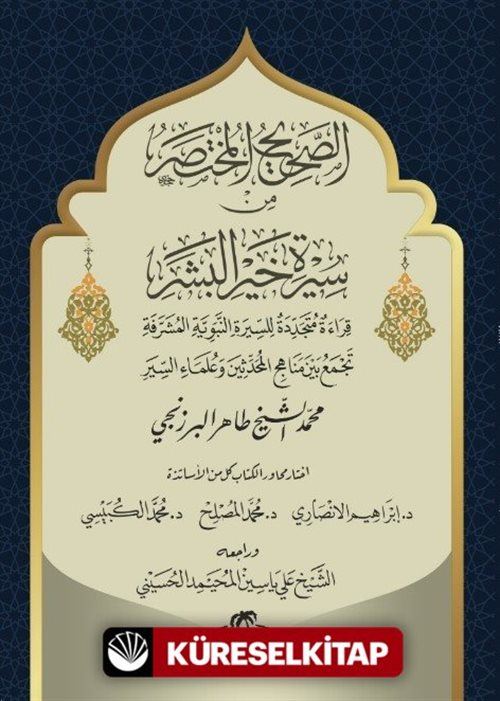 الصَّحِيحُ المُخْتَصَرُ
مِن
سِيرَةِ خَيْرِ البَشَرِ
قِرَاءَةٌ مُتَجَدِّدَةٌ لِلسِّيرَةِ النَّبَوِيَّةِ المُشَرَّفَةِ
تَجْمَعُ بَيْنَ مَنَاهِجِ المُحَدِّثِينَ وَعُلَمَاءِ السِّيَرِ
محمّد الشّيخ طاهر البرزنجي
اختار محاور الكتاب كل من الأساتذة
د. إبْرَاهِيم الانْصَاري د. مُحمَّد المُصْلِح د. مُحمَّد الكُبَيْسِي
وراجعه
الشَّيْخ عَلي يَاسِين المُحَيْمِد الحُسَيْنِي
KÜRESELKİTAP